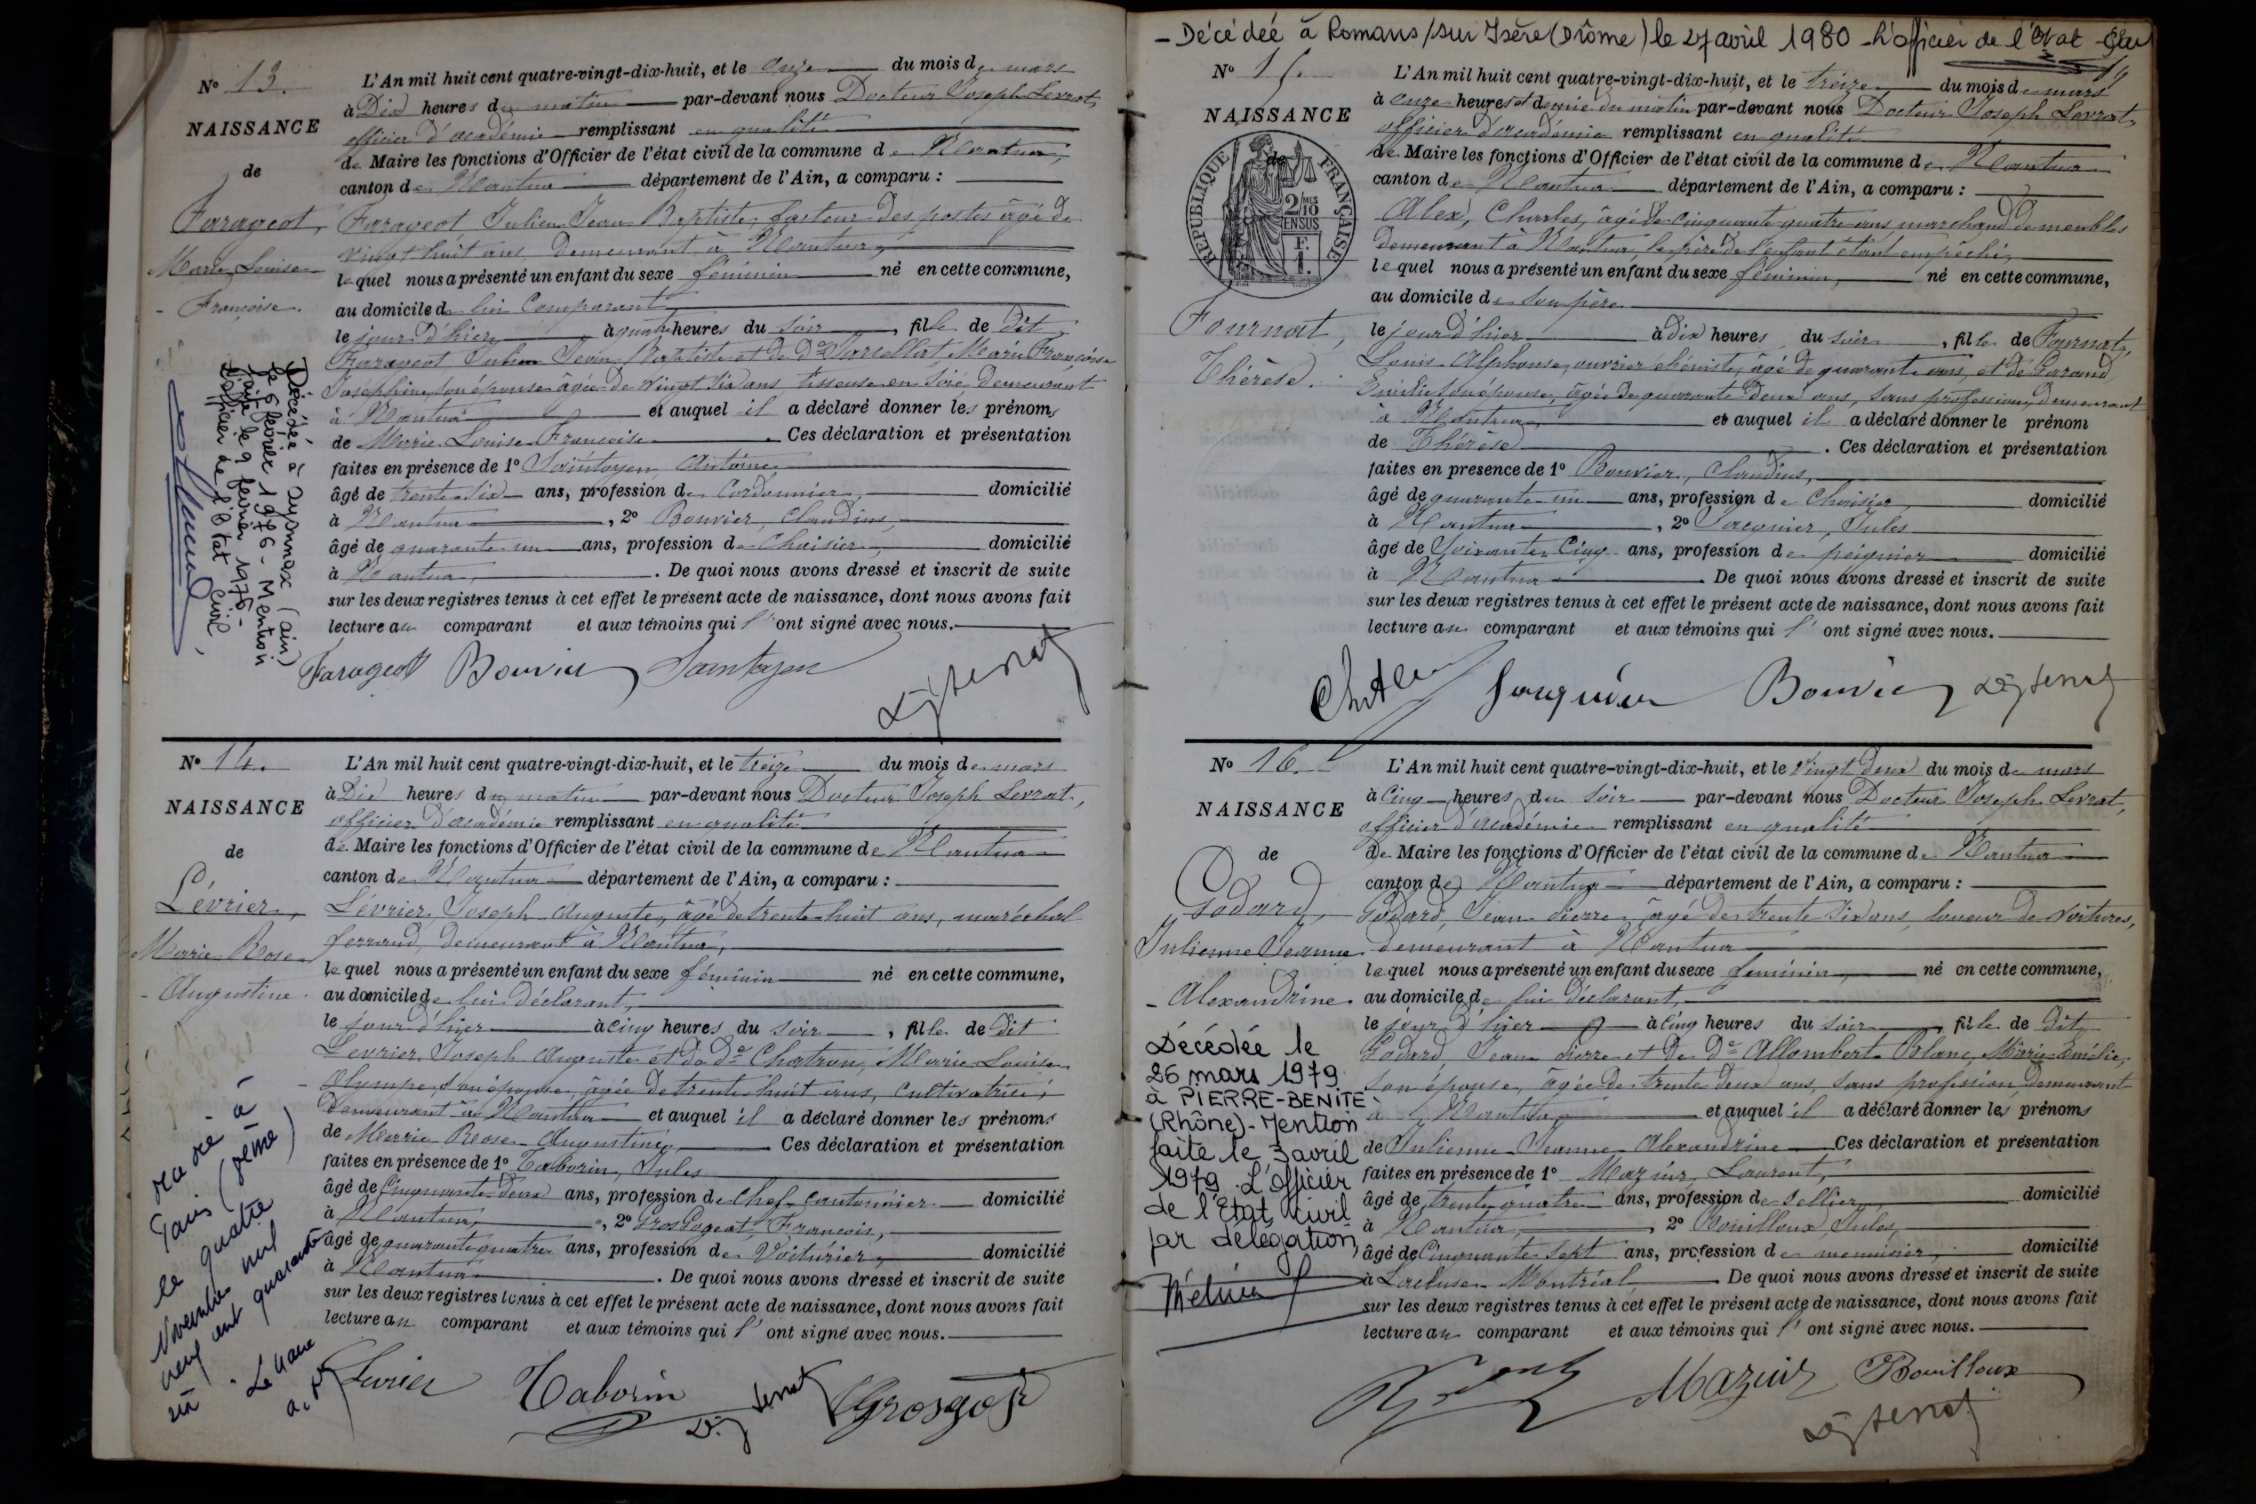 N° 13.
NAISSANCE
de
Farageot,
Marie Louise
Françoise.
L'An mil huit cent quatre-vingt-dix-huit, et le onze du mois de mars
à Dix heures du matin par-devant nous Docteur Joseph Levrat,
officier d'académie remplissant en qualité
de Maire les fonctions d'Officier de l'état civil de la commune de Nantua,
canton de Nantua département de l'Ain, a comparu :
Farageot, Julien Jean Baptiste, facteur des postes âgé de
vingt huit ans, demeurant à Nantua,
lequel nous a présenté un enfant du sexe féminin né en cette commune,
au domicile de lui Comparant
le jour d'hier à quatre heures du soir, fille de dit
Farageot Julien Jean Baptiste et de De Marie Françoise
Joséphine, son épouse âgée de vingt six ans tisseuse en soie, demeurant
à Nantua et auquel il a déclaré donner les prénoms
de Marie Louise Françoise. Ces déclaration et présentation
faites en présence de 1° Saintoyen Antoine
âgé de trente six ans, profession de Cordonnier, domicilié
à Nantua, 2° Bouvier, Claudius,
âgé de quarante un ans, profession de Chaisier, domicilié
à Nantua. De quoi nous avons dressé et inscrit de suite
sur les deux registres tenus à cet effet le présent acte de naissance, dont nous avons fait
lecture au comparant et aux témoins qui l'ont signé avec nous.
Décédée à Oyonnax (ain)
le 6 février 1976 - Mention
faite le 9 février 1976 -
L'officier de l'Etat Civil,
Farageot Bouvier Saintoyen
Dr J Levrat
N° 14.
NAISSANCE
de
Lévrier,
Marie Rose
Augustine.
L'An mil huit cent quatre-vingt-dix-huit, et le treize du mois de mars
à Dix heures du matin par-devant nous Docteur Joseph Levrat,
officier d'académie remplissant en qualité
de Maire les fonctions d'Officier de l'état civil de la commune de Nantua
canton de Nantua département de l'Ain, a comparu :
Lévrier, Joseph Auguste, âgé de trente huit ans, maréchal
ferrand, demeurant à Nantua,
lequel nous a présenté un enfant du sexe féminin né en cette commune,
au domicile de lui déclarant,
le jour d'hier à cinq heures du soir, fille de dit
Levrier Joseph Auguste et de De Chatron, Marie Louise
Olympe, son épouse, âgée de trente huit ans, cultivatrice,
demeurant à Nantua et auquel il a déclaré donner les prénoms
de Marie Rose Augustine, Ces déclaration et présentation
faites en présence de 1° Taborin, Jules
âgé de Cinquante Deux ans, profession de Chef Cantonnier domicilié
à Nantua, 2° Grosgogeat, François,
âgé de quarante quatre ans, profession de Voiturier, domicilié
à Nantua. De quoi nous avons dressé et inscrit de suite
sur les deux registres tenus à cet effet le présent acte de naissance, dont nous avons fait
lecture au comparant et aux témoins qui l'ont signé avec nous.
Marié à
Paris
le quatre
Novembre mil
neuf cent quarante
Le Maire
Levrier Taborin Dr J Levrat Grosgogeat
- Décédée à Romans/sur Isère (Drôme) le 27 avril 1980 - L'officier de l'Etat - Civil
N° 15.
NAISSANCE
de
REPUBLIQUE FRANÇAISE
2/10
EN SUS
F.
1.
Fournat,
Thérèse.
L'An mil huit cent quatre-vingt-dix-huit, et le treize du mois de mars
à onze heures et demie du matin par-devant nous Docteur Joseph Levrat,
officier d'académie remplissant en qualité
de Maire les fonctions d'Officier de l'état civil de la commune de Nantua
canton de Nantua département de l'Ain, a comparu :
Alex, Charles, âgé de cinquante quatre ans, marchand de meubles
demeurant à Nantua, le père de l'enfant étant empêché,
lequel nous a présenté un enfant du sexe féminin, né en cette commune,
au domicile de son père
le jour d'hier à dix heures du soir, fille de Fournat,
Louis Alphonse, ouvrier ébéniste, âgé de quarante ans, et de Garand
Emilie, son épouse, âgée de quarante deux ans, sans profession, demeurant
à Nantua et auquel il a déclaré donner le prénom
de Thérèse. Ces déclaration et présentation
faites en présence de 1° Bouvier, Claudius,
âgé de quarante un ans, profession de Chaisier domicilié
à Nantua, 2° Jacquier, Jules
âgé de Soixante Cinq ans, profession de peignier domicilié
à Nantua. De quoi nous avons dressé et inscrit de suite
sur les deux registres tenus à cet effet le présent acte de naissance, dont nous avons fait
lecture au comparant et aux témoins qui l'ont signé avec nous.
Ch Alex Jacquier Bouvier Dr J Levrat
N° 16.
NAISSANCE
de
Godard,
Julienne Jeanne
Alexandrine.
L'An mil huit cent quatre-vingt-dix-huit, et le vingt deux du mois de mars
à Cinq heures du soir par-devant nous Docteur Joseph Levrat,
officier d'académie remplissant en qualité
de Maire les fonctions d'Officier de l'état civil de la commune de Nantua
canton de Nantua département de l'Ain, a comparu :
Godard, Jean Pierre, âgé de trente six ans, loueur de voitures,
demeurant à Nantua
lequel nous a présenté un enfant du sexe féminin, né en cette commune,
au domicile de lui déclarant,
le jour d'hier à cinq heures du soir, fille de dit,
Godard, Jean Pierre et de De Allombert Blanc, Marie Emélie,
son épouse, âgée de trente deux ans, sans profession demeurant
à Nantua et auquel il a déclaré donner les prénoms
de Julienne Jeanne Alexandrine Ces déclaration et présentation
faites en présence de 1° Mazuir, Laurent,
âgé de trente quatre ans, profession de sellier domicilié
à Nantua, 2° Bouilloux, Jules,
âgé de Cinquante Sept ans, profession de menuisier, domicilié
à Lacluse Montréal De quoi nous avons dressé et inscrit de suite
sur les deux registres tenus à cet effet le présent acte de naissance, dont nous avons fait
lecture au comparant et aux témoins qui l'ont signé avec nous.
Décédée le
26 mars 1979
à PIERRE-BENITE
(Rhône) - Mention
faite le 3 avril
1979 L'officier
de l'Etat civil
par délégation,
Mazuir Bouilloux
Dr J Levrat